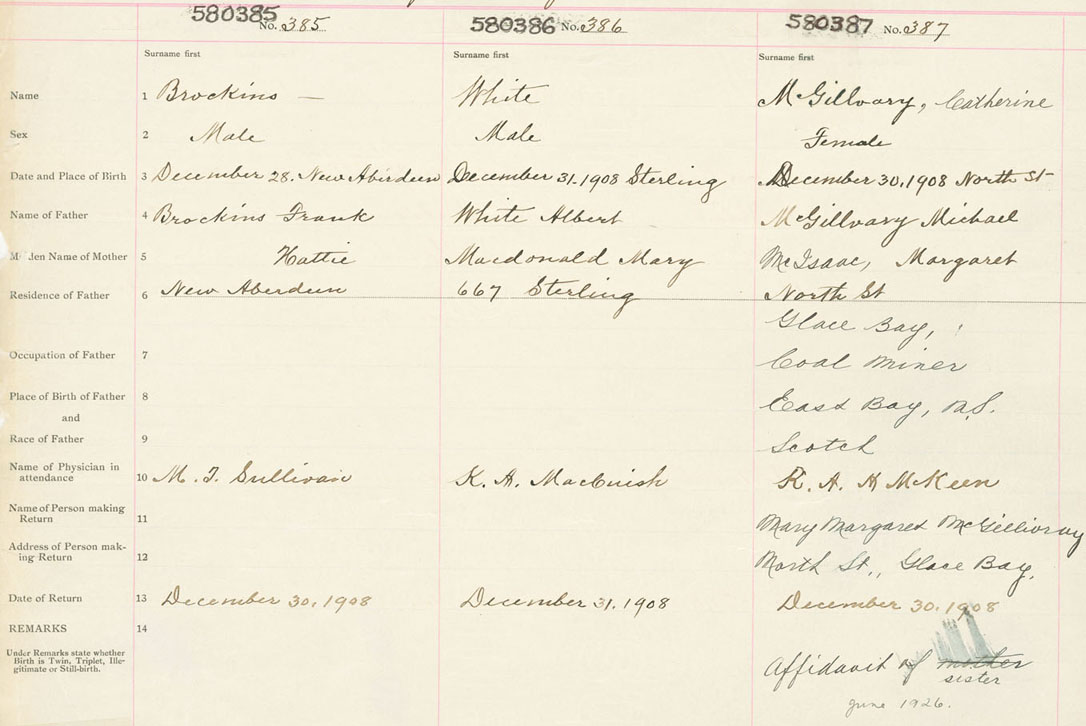 580385 No. 385 580386 No. 386 580387 No. 387
Surname first Surname first Surname first
Name 1 Brockins — White McGillvary, Catherine
Sex 2 Male Male Female
Date and Place of Birth 3 December 28. New Aberdeen December 31. 1908 Sterling December 30, 1908 North St
Name of Father 4 Brockins Frank White Albert McGillvary Michael
M den Name of Mother 5 Hattie Macdonald Mary McIsaac, Margaret
Residence of Father 6 New Aberdeen 667 Sterling North St
Glace Bay,
Occupation of Father 7 Coal Miner
Place of Birth of Father 8 East Bay, N.S.
and
Race of Father 9 Scotch
Name of Physician in
attendance 10 M. T. Sullivan K. A. MacCuish R. A. H McKeen
Name of Person making
Return 11 Mary Margaret McGillivray
Address of Person mak-
ing Return 12 North St., Glace Bay,
Date of Return 13 December 30. 1908 December 31. 1908 December 30. 1908
REMARKS 14
Under Remarks state whether
Birth is Twin, Triplet, Ille-
gitimate or Still-birth.
Affidavit of mother
sister
June 1926.